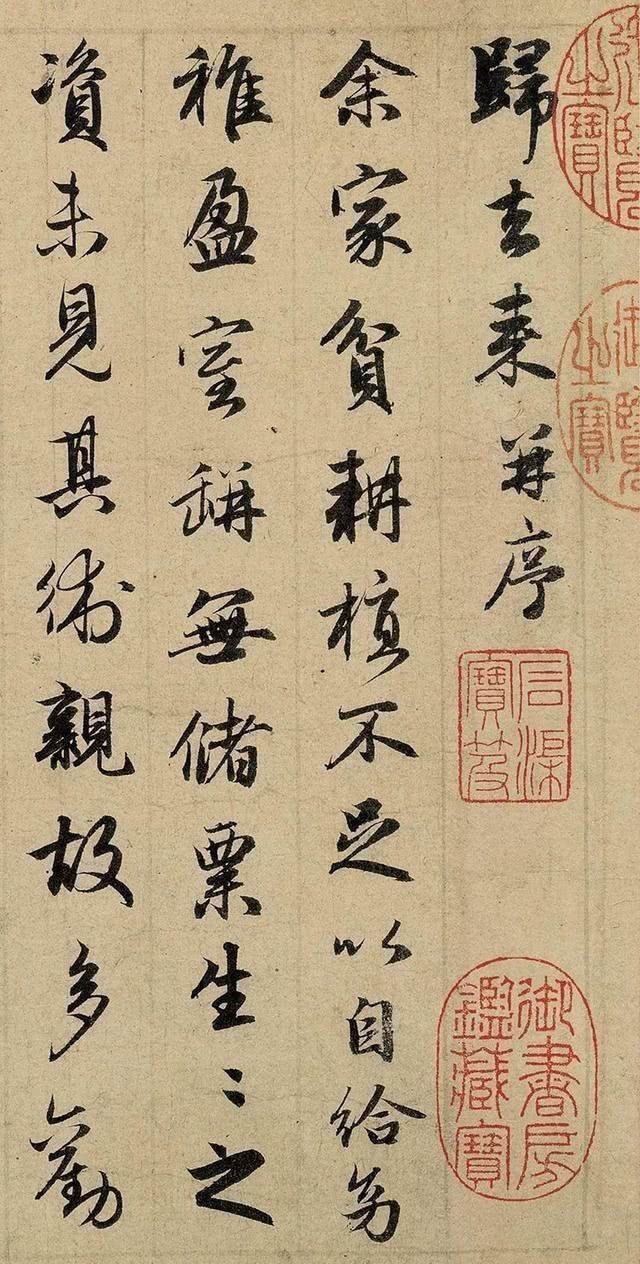 歸去来并序
余家貧耕植不足以自給幼
稚盈室缾無儲粟生〻之
資未見其術親故多勸
御覽之寶
御覽之寶
石渠寶笈
御書房鑑藏寶